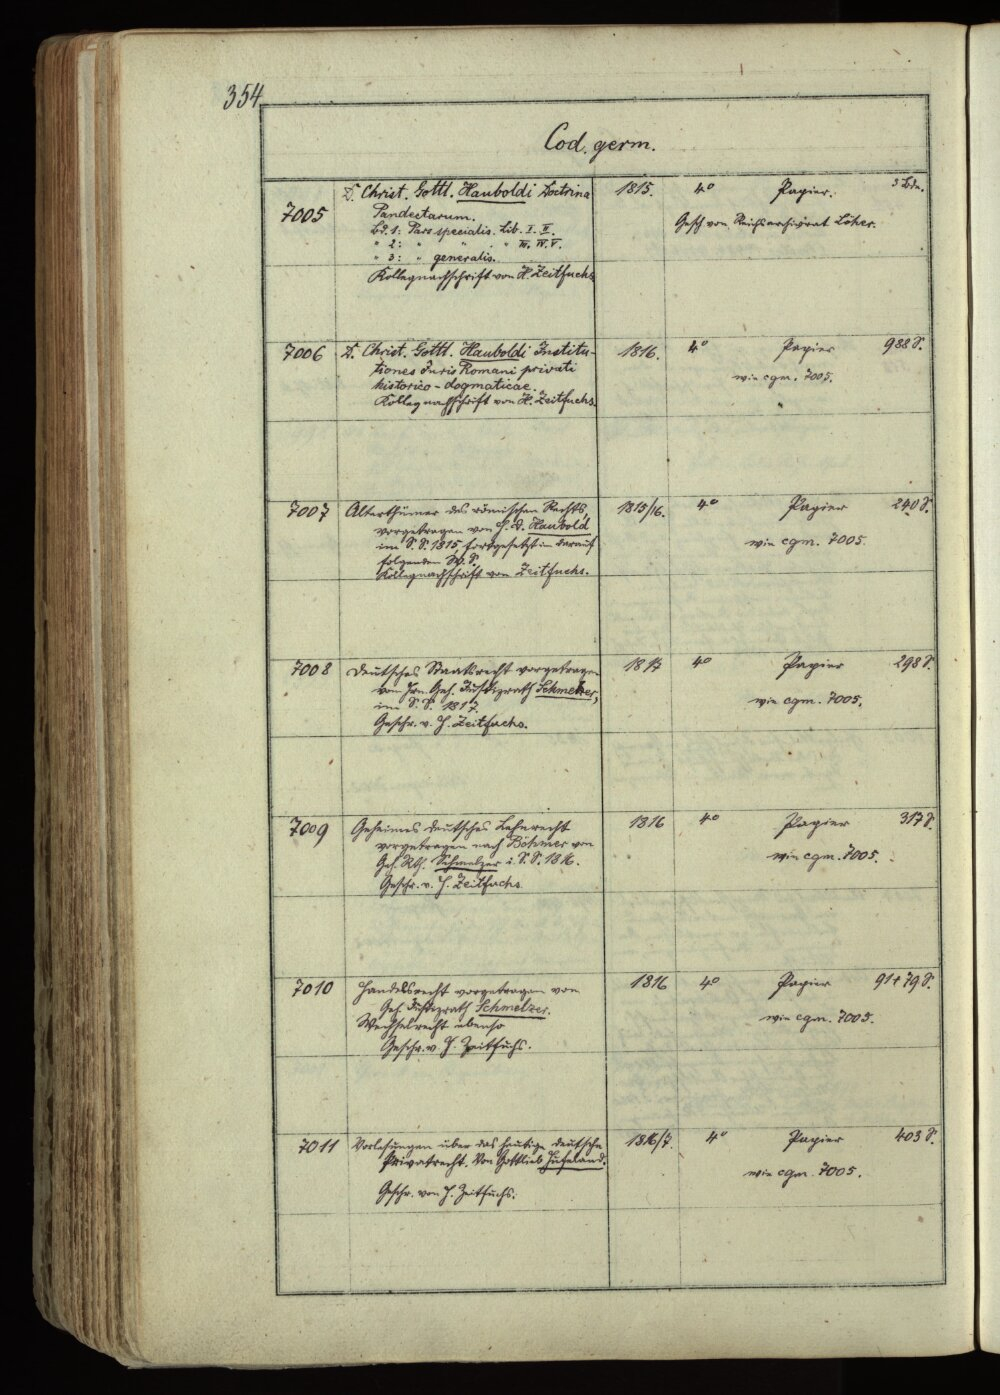 354
Cod. germ.
7005 D. Christ. Gottl. Hauboldi Doctrina 1815. 4° Papier. 3 Bde.
Pandectarum. Gesch von Reichsarchivrat Löher.
Bd. 1: Pars specialis. Lib. I. II.
" 2: " " " III. IV. V.
" 3: " generalis.
Kollegnachschrift von H. Zeitfuchs
7006 D. Christ. Gottl. Hauboldi Institu- 1816. 4° Papier 988 S.
tiones Juris Romani privati wie cgm. 7005.
historico-dogmaticae.
Kollegnachschrift von H. Zeitfuchs.
7007 Alterthümer des römischen Rechts, 1815/16. 4° Papier 240 S.
vorgetragen von H. D. Haubold wie cgm. 7005.
im S. S. 1815, fortgesetzt im darauf
folgenden W. S.
Kollegnachschrift von Zeitfuchs.
7008 Deutsches Staatsrecht vorgetragen 1817 4° Papier 298 S.
von Hrn Geh. Justizrath Schmelzer, wie cgm. 7005.
im S. S. 1817.
Geschr. v. H. Zeitfuchs.
7009 Geheimes deutsches Lehnrecht 1816 4° Papier 317 S.
vorgetragen nach Böhmer von wie cgm. 7005.
Geh. Rth. Schmelzer i. S. S. 1816.
Geschr. v. H. Zeitfuchs
7010 Handelsrecht vorgetragen von 1816 4° Papier 91+79 S.
Geh. Justizrath Schmelzer. wie cgm. 7005.
Wechselrecht ebenso
Geschr. v. H. Zeitfuchs.
7011 Vorlesungen über das heutige deutsche 1816/7. 4° Papier 403 S.
Privatrecht. Von Gottlieb Hufeland. wie cgm. 7005.
Geschr. von H. Zeitfuchs.